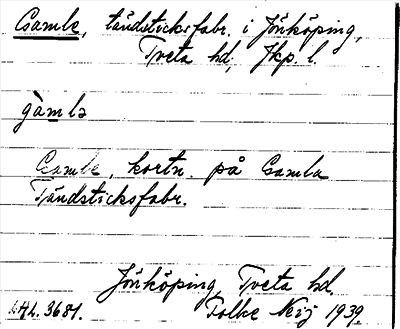 Gamle, tändsticksfabr. i Jönköping,
Tveta hd, Jkp. l.
gàmlə
Gamle, kortn. på Gamla
Tändsticksfabr.
Jönköping, Tveta hd.
AHL. 3681. Folke Neij 1939.